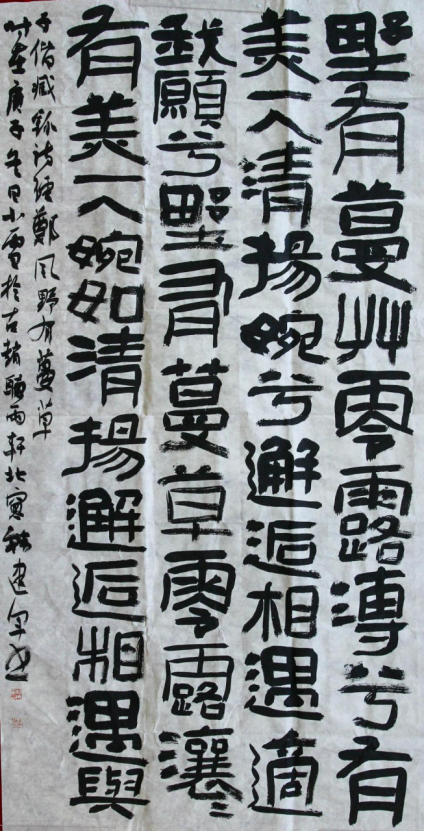 野有蔓艸零露漙兮有
美一人清揚婉兮邂逅相遇適
我願兮野有蔓草零露瀼〻
有美一人婉如清揚邂逅相遇與
子偕臧錄詩經鄭風野有蔓草
时在庚子冬日小雪於古趙聽雨軒北窗建军书